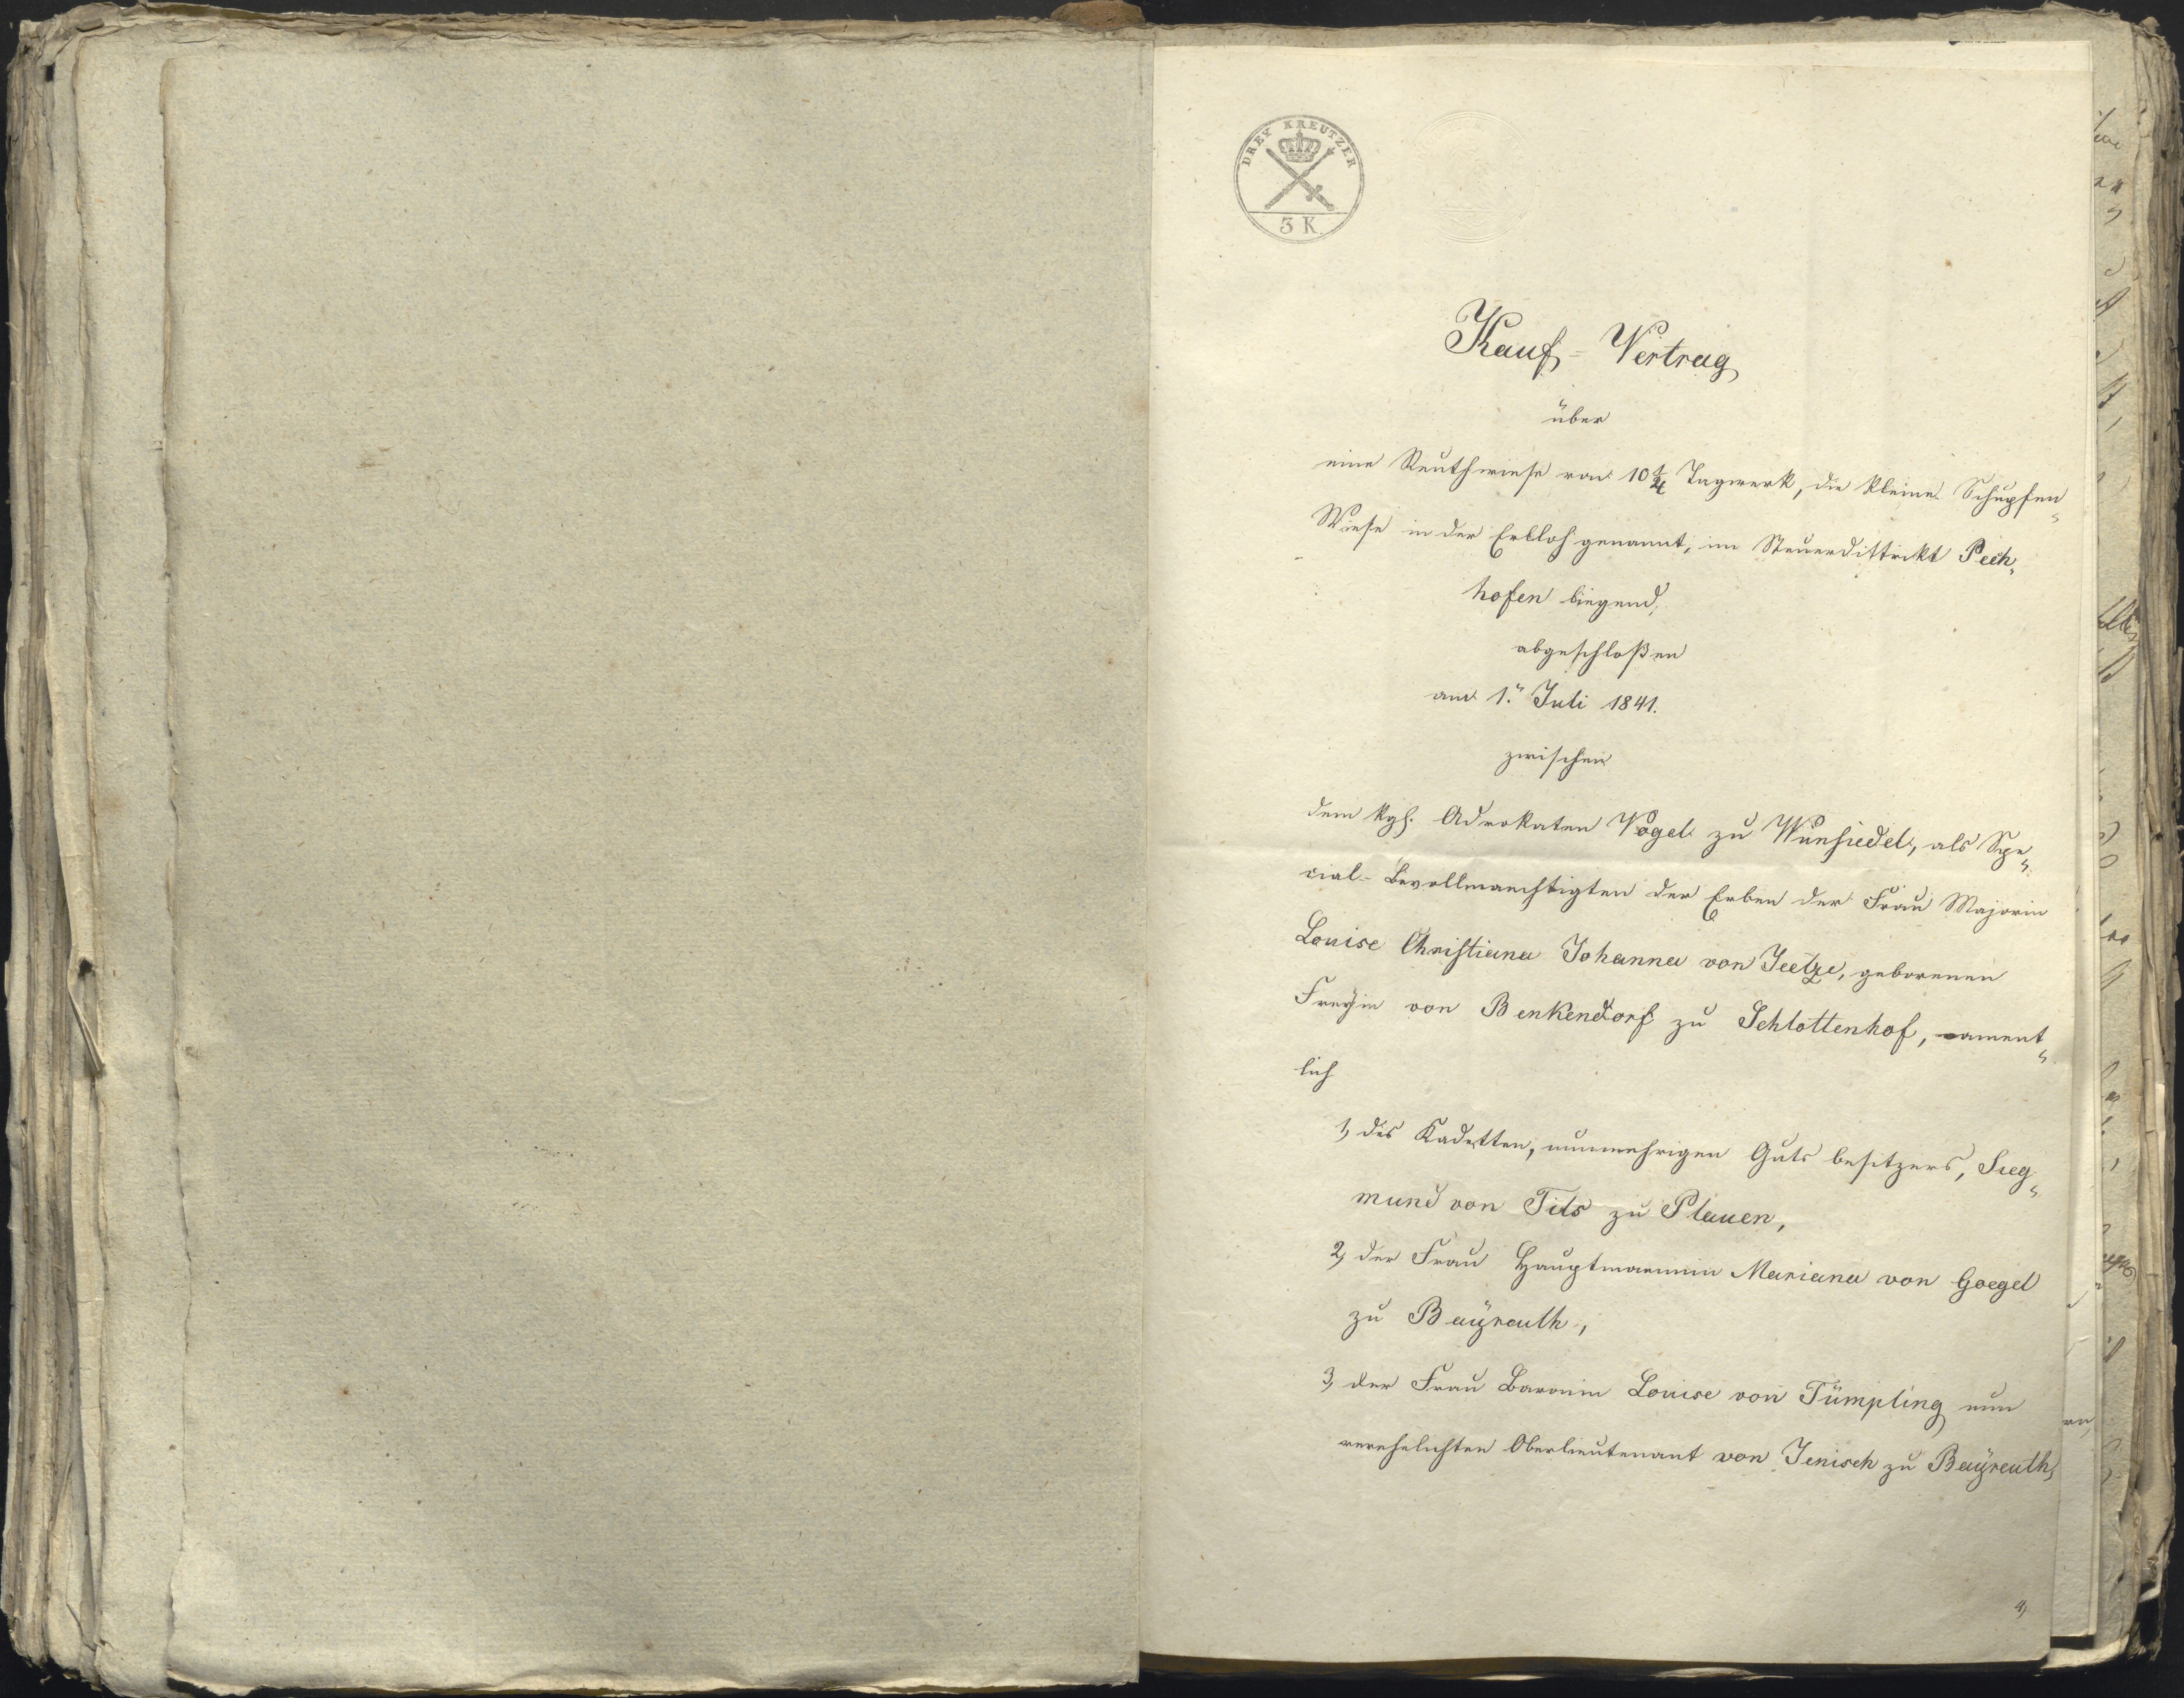 DREY KREUTZER
3 K.
Kauf-Vertrag
über
eine Reuthwiese von 10 1/4 Tagwerk, die kleine Schupfen„
Wiese in der Erlloh genannt, im Steuerdistrikt Pech„
hofen liegend,
abgeschloßen
am 1.n Juli 1841.
zwischen
dem kgl. Advokaten Vogel zu Wunsiedel, als Spe„
cial-Bevollmaechtigten der Erben der Frau Majorin
Louise Christiana Johanna von Jeetze, geborenen
Freyin von Benkendorf zu Schlottenhof, nament„
lich
1, des Kadetten, nunmehrigen Guts besitzers, Sieg„
mund von Tils zu Plauen,
2, der Frau Hauptmannin Mariana von Goegel
zu Bayreuth,
3, der Frau Baronin Louise von Tümpling nun
verehelichten Oberlieutenant von Jenisch zu Bayreuth,
4,